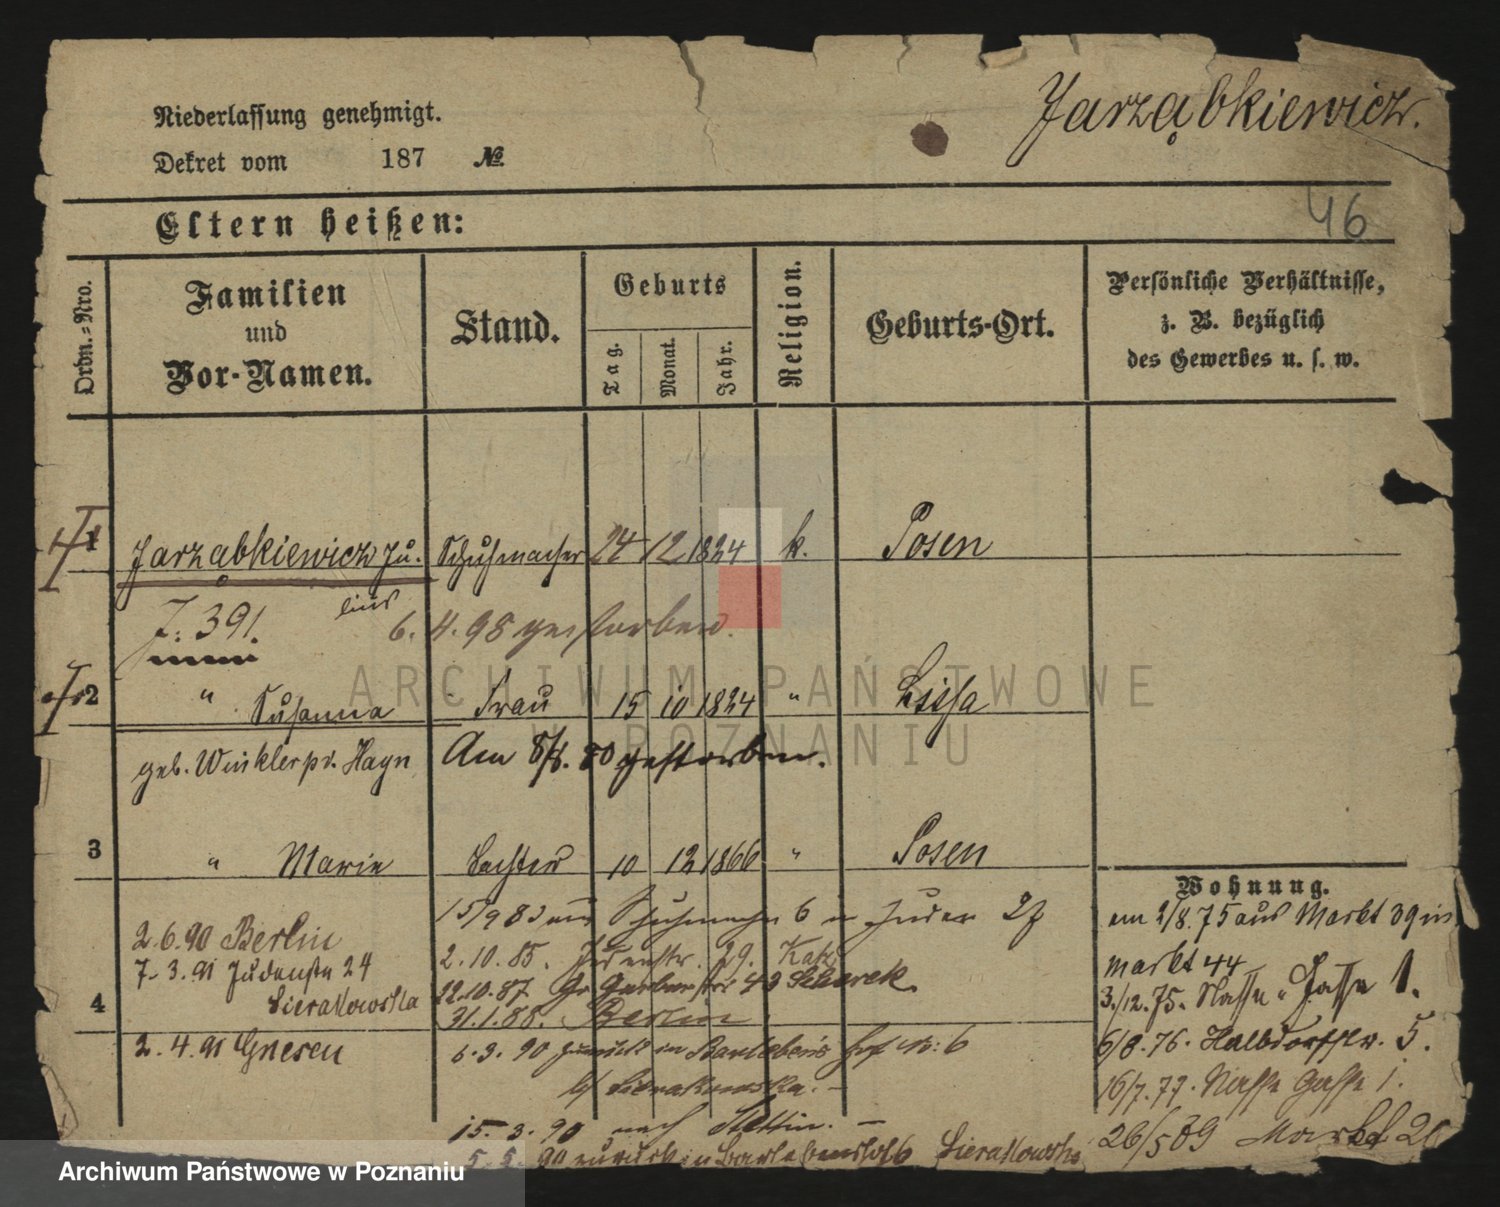 Jarząbkiewicz.
Niederlassung genehmigt.
Dekret vom 187 №.
46
Eltern heißen:
Ordn.-Nro.
Familien und Vor-Namen.
Stand.
Geburts
Tag. Monat. Jahr.
Religion.
Geburts-Ort.
Persönliche Verhältnisse,
z. B. bezüglich
des Gewerbes u. s. w.
1 Jarząbkiewicz Ju- Schuhmacher 24 12 1824 k. Posen
lius
J: 391. 6. 4. 98 gestorben.
2 " Susanna Frau 15 10 1824 " Lissa
geb. Winkler pr. Hayn Am 8/8. 80 gestorben.
3 " Marie Tochter 10 12 1866 " Posen
Wohnung.
am 2/8. 75 aus Markt 39 in
Markt 44
3./12. 75. Nasse Gasse 1.
6/8. 76. Halbdorfstr. 5.
16/7. 77. Nasse Gasse 1.
26/5 89 Markt
15/9 83 Schuhmacher 6
2. 10. 85. Judenstr. 29. Katz
22.10.87 Gr Gerberstr 43
31. 1. 88. Berlin
6. 3. 90 zurück in Bartlebens hof N: 6
b/ Sierakowska. -
15. 3. 90 nach Stettin. -
5. 5. 90 zurück in Bartlebenshof 6 Sierakowska
2. 6. 90 Berlin
7. 3. 91 Judenstr 24
Sierakowska
4
2. 4. 91 Gnesen
ARCHIWUM PAŃSTWOWE
W POZNANIU
Archiwum Państwowe w Poznaniu